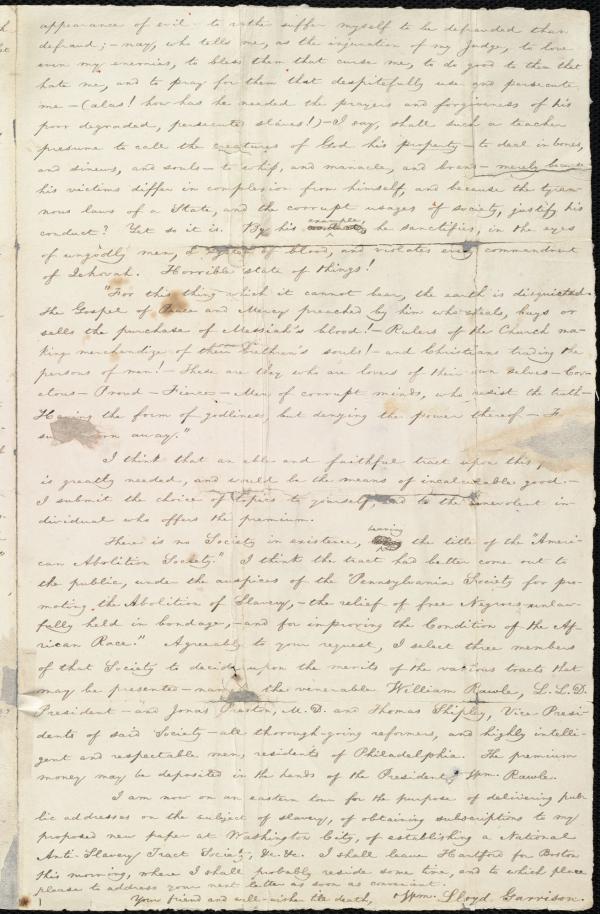 appearance of evil – to rather suffer myself to be defrauded than
defraud; – nay, who tells me, as the injunction of my Judge, to love
even my enemies, to bless them that curse me, to do good to them that
hate me, and to pray for them that despitefully use and persecute
me – (alas! how has he needed the prayers and forgiveness of his
poor degraded, persecuted slaves!) – I say, shall such a teacher
presume to call the creatures of God his property – to deal in bones,
and sinews, and souls – to whip, and manacle, and brand – merely because
his victims differ in complexion from himself, and because the tyran-
nous laws of a State, and the corrupt usages of society, justify his
conduct? Yet so it is. By his example, he sanctifies, in the eyes
of ungodly men, a system of blood, and violates every commandment
of Jehovah. Horrible state of things!
"For this thing which it cannot bear, the earth is disquieted.
The Gospel of Peace and Mercy preached by him who steals, buys or
sells the purchase of Messiah's blood! – Rulers of the Church ma-
king merchandize of their brethren's souls! – and Christians trading the
persons of men! – These are they who are lovers of their own selves – Cov-
etous – Proud – Fierce – Men of corrupt minds, who resist the truth –
Having the form of godliness, but denying the power thereof –
away."
I think that an able and faithful tract upon this
is greatly needed, and would be the means of incalculable good. –
I submit the choice of topics to yourself, and to the benevolent in-
dividual who offers the premium.
There is no Society in existence, bearing the title of the "Ameri-
can Abolition Society." I think the tract had better come out to
the public, under the auspices of the "Pennsylvania Society for pro-
moting the Abolition of Slavery, – the relief of free Negroes unlaw-
fully held in bondage, – and for improving the Condition of the Af-
rican Race." Agreeably to your request, I select three members
of that Society to decide upon the merits of the various tracts that
may be presented – the venerable William Rawle, L.L.D.
President – and Jonas Preston, M.D. and Thomas Shipley, Vice Presi-
dents of said Society – all thorough-going reformers, and highly intelli-
gent and respectable men, residents of Philadelphia. The premium
money may be deposited in the hands of the President, Wm. Rawle.
I am now on an eastern tour for the purpose of delivering pub-
lic addresses on the subject of slavery, of obtaining subscriptions to my
proposed new paper at Washington City, of establishing a National
Anti-Slavery Tract Society, &c. &c. I shall leave Hartford for Boston
this morning, where I shall probably reside some time, and to which place
please to address your next letter as soon as convenient.
Your friend and well-wisher till death, Wm. Lloyd Garrison.